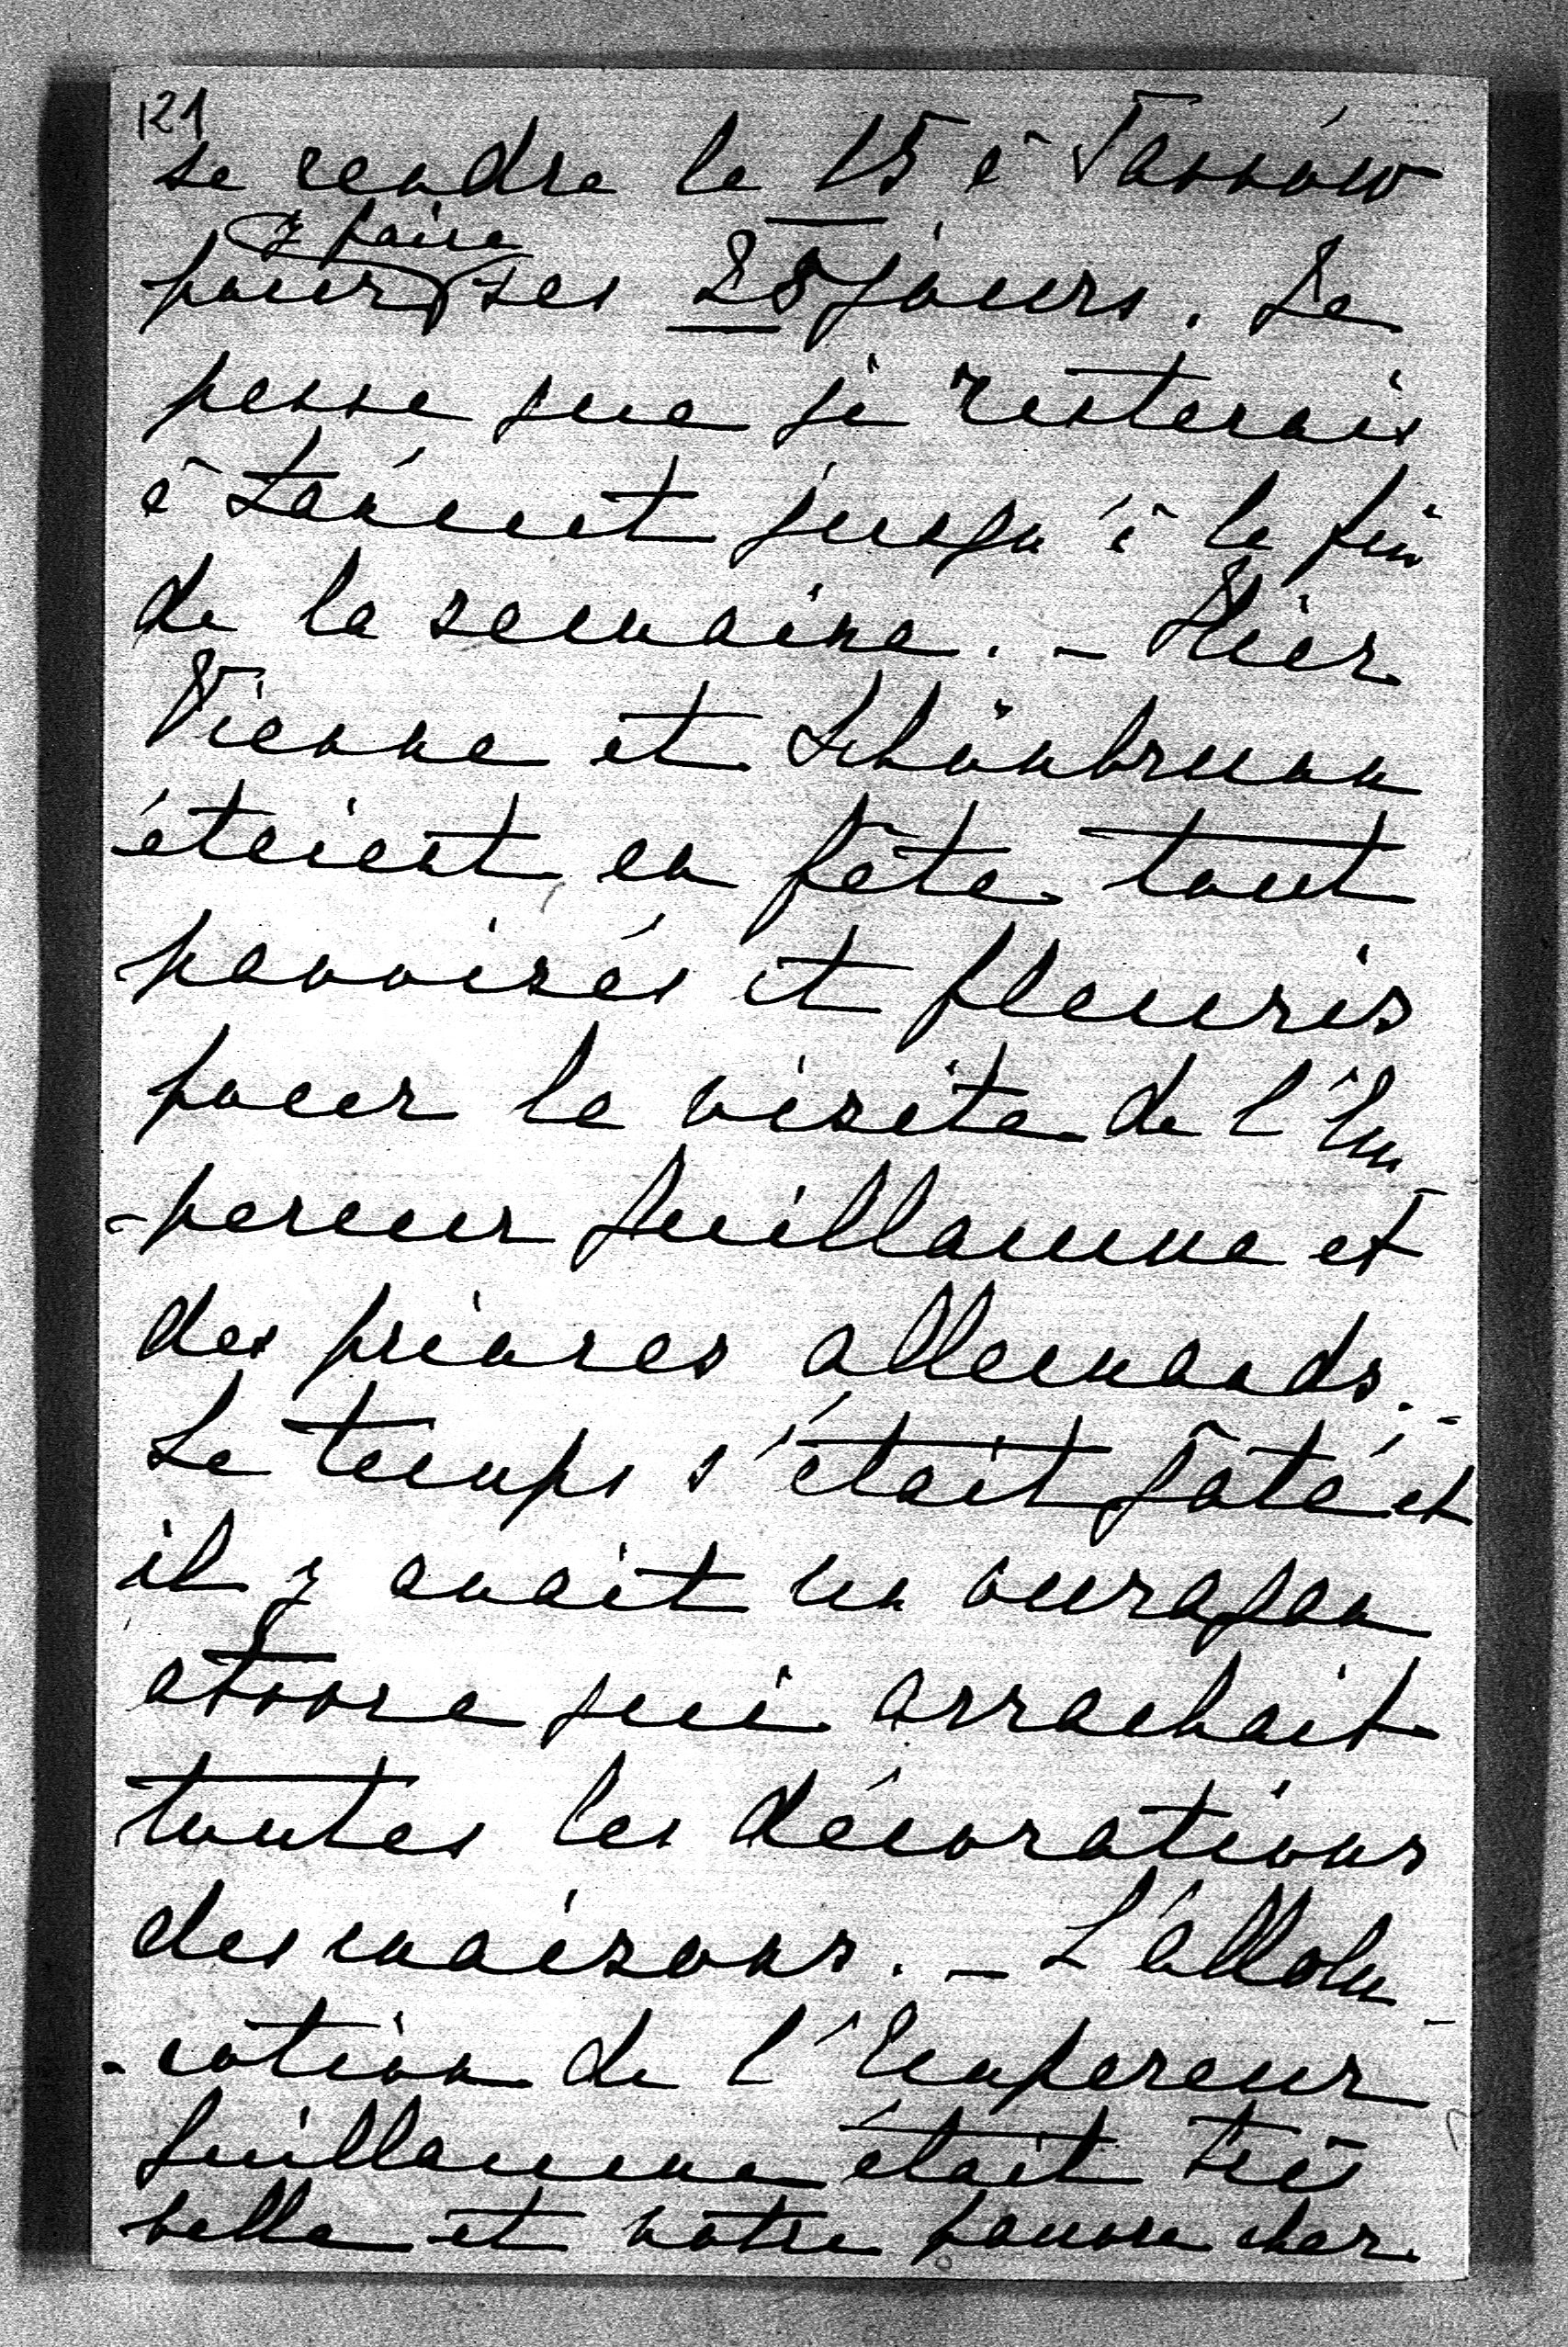 121
se rendre le 15 à Tarnów
y faire
pour ses 28 jours. Je
pense que je resterais
à Łańcut jusqu'à la fin
de la semaine. - Hier
Vienne et Schönbrunn
étaient en fête tout
pavoisés et fleuris
pour la visite de l'Em
-pereur Guillaume et
des princes allemands. -
Le temps s'était gâté et
il y avait un ouragan
atroce qui arrachait
toutes les décorations
des maisons. - L'allolu-
-cation de l'Empereur
Guillaume était très
belle et notre pauvre cher